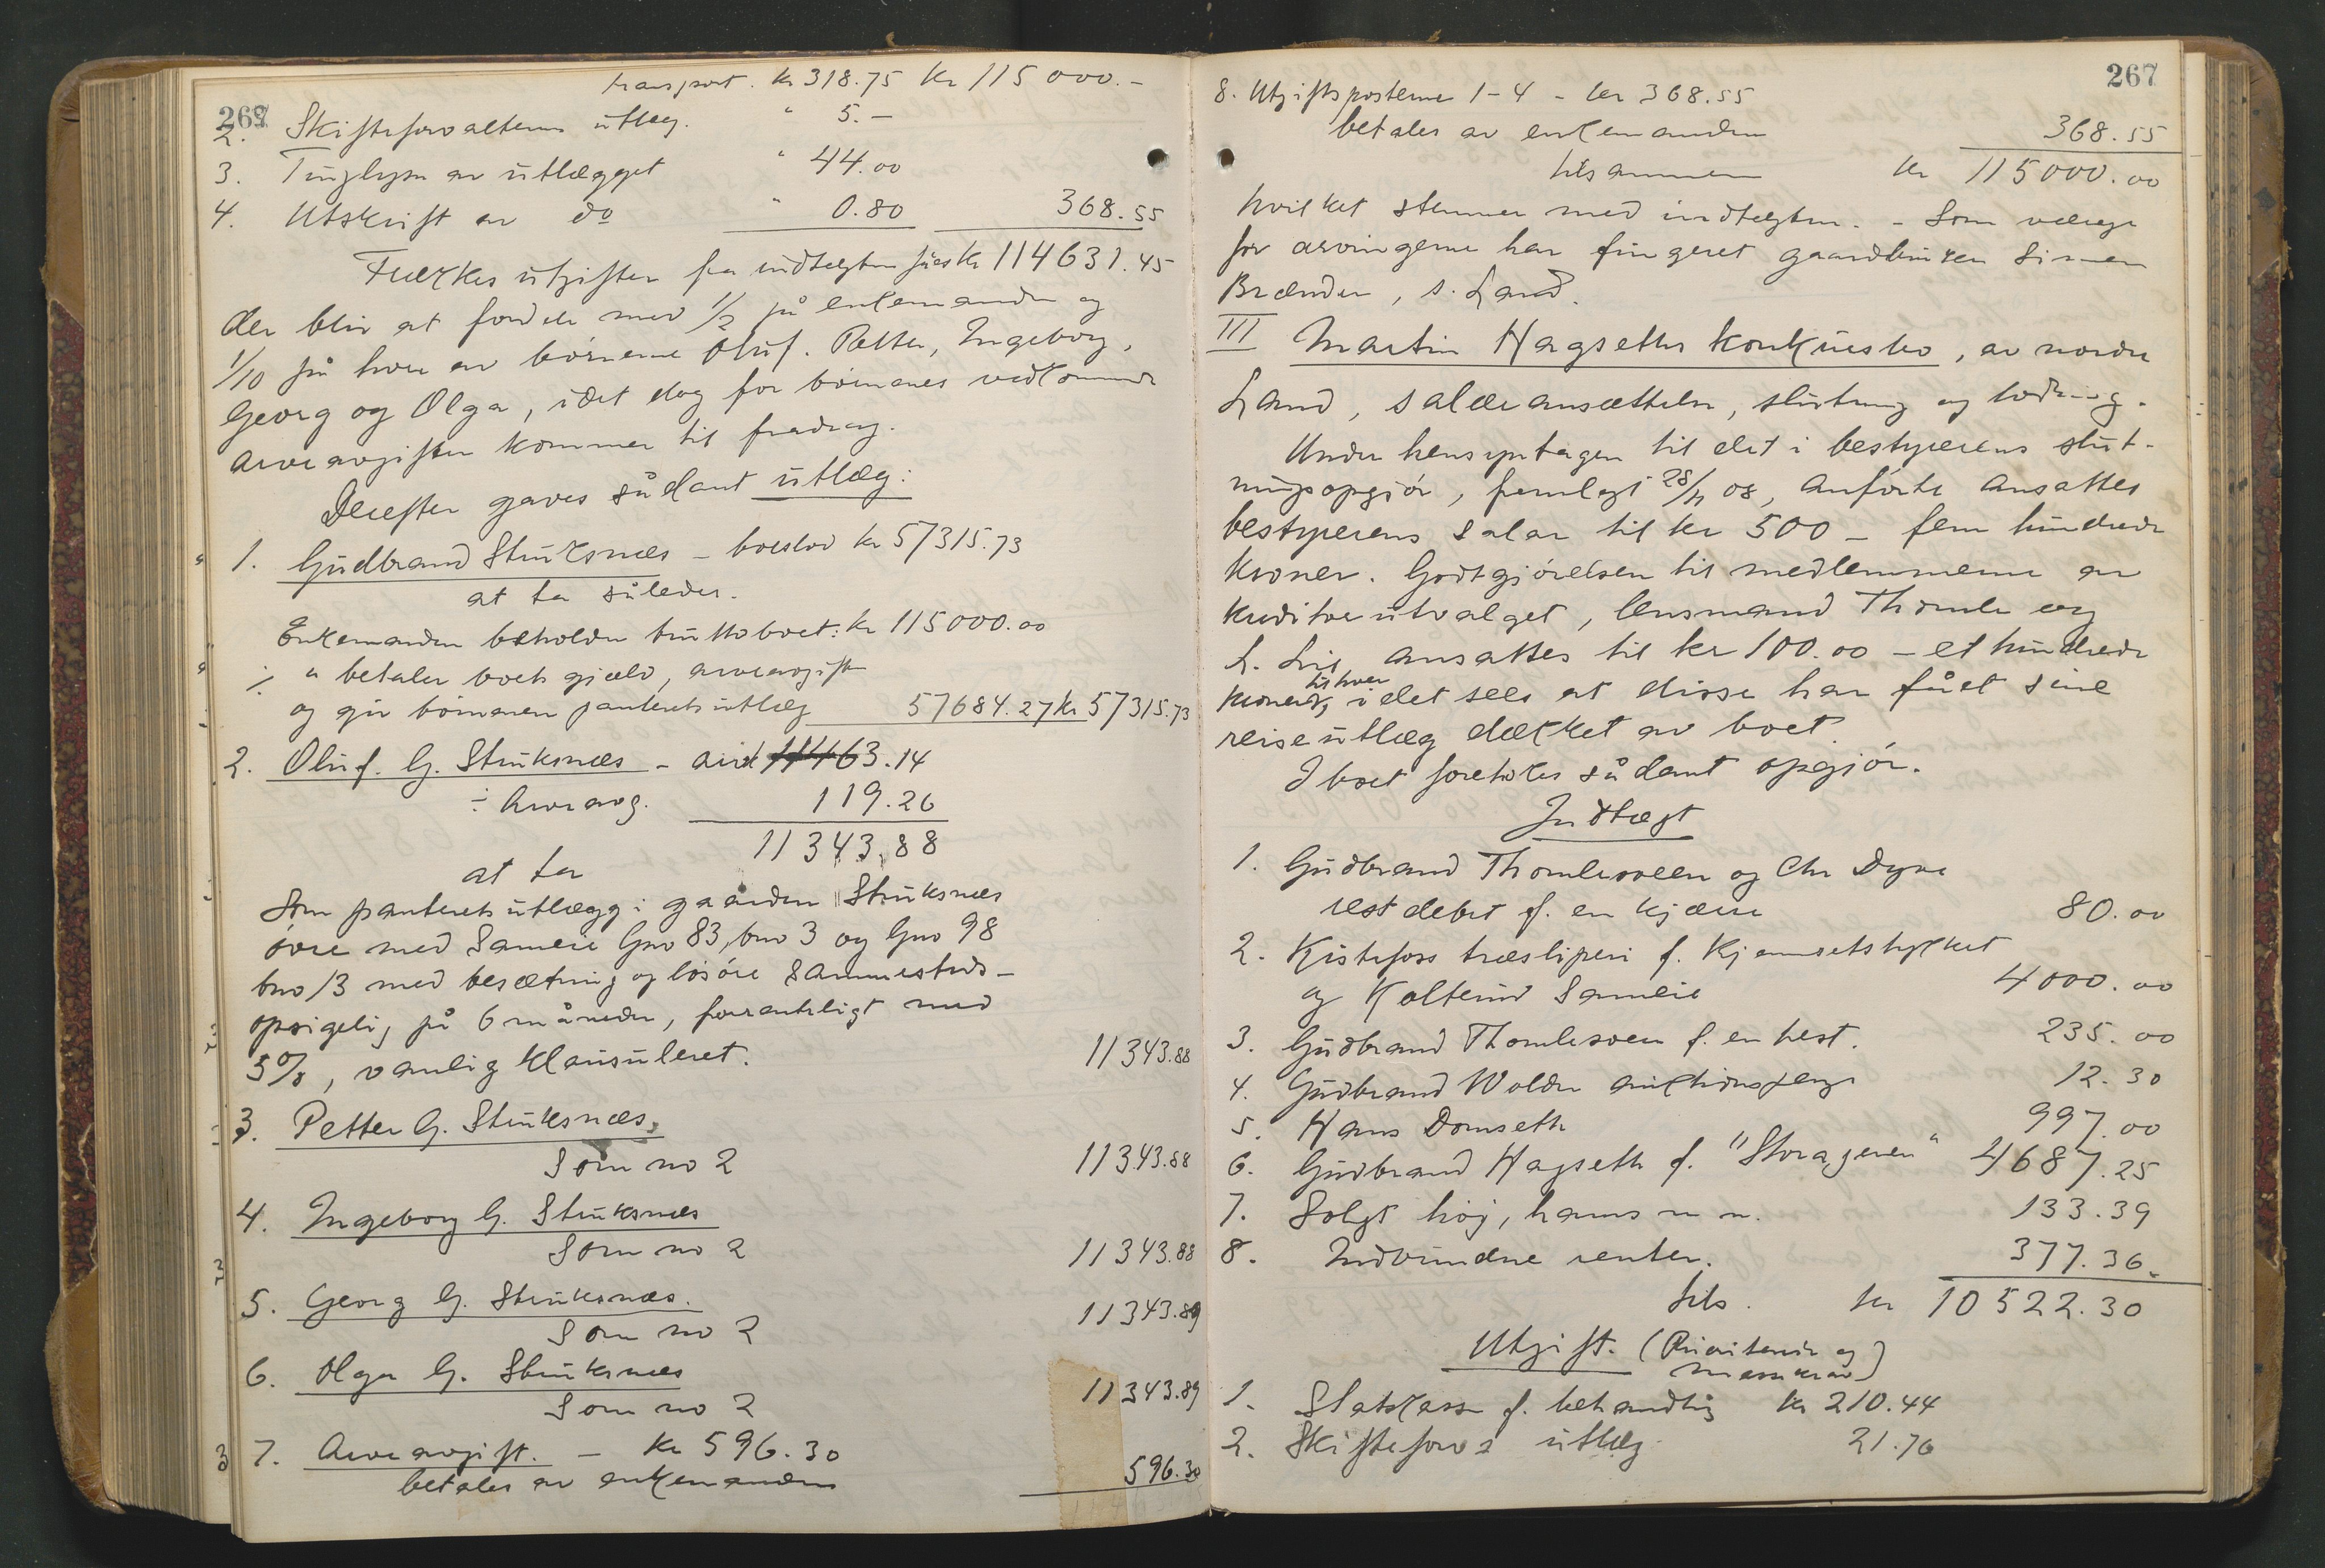 transport. kr 318.75 kr 115000.-
267
2. Skifteforvalterens utlæg. " 5.-
3. Tinglysn av utlægget " 44.00
4. Utskrift av do " 0.80 368.55
Trækkes utgiften fra indtægten fåes kr 114631.45
der blir at fordele med 1/2 på enkemanden og
1/10 på hver av börnene Oluf. Petter, Ingeborg,
Georg og Olga, idet dog for börnenes vedkommende
arveavgiften kommer til fradrag.
Derefter gaves sådant utlæg:
1. Gudbrand Struksnæs - boeslod kr 57315.73
at ta således.
Enkemanden beholder bruttoboet: kr 115000.00
÷ " betaler boets gjæld, arveavgift
og gir börnenes panteretsutlæg 57684.27 kr 57315.73
2. Oluf. G. Struksnæs - arv 11463.14
÷ Arveavg. 119.26
11343.88
at ta
som panteretsutlægg i gaarden Struksnæs
övre med Sameie Gno 83, bno 3 og Gno 98
bno 13 med besætning og lösöre sammesteds -
opsigelig på 6 måneder, forrentligt med
5%, vanlig klausuleret. 11343.88
3. Petter G. Struksnæs.
Som no 2 11343.88
4. Ingeborg G. Struksnæs
Som no 2 11343.88
5. Georg G. Struksnæs.
Som no 2 11343.89
6. Olga G. Struksnæs
Som no 2 11343.89
7. Arveavgift. - kr 596.30
betales av enkemanden 596.30
267
8. Utgiftsposterne 1-4 - kr 368.55
betales av enkemanden 368.55
tilsammen kr 115000.00
hvilket stemmer med indtægten. - Som værge
for arvingerne har fungeret gaardbruker Simen
Brænden, s. Land.
III Martin Hagseths konkursbo, av nordre
Land, salæransættelse, slutning og lodning.
Under hensyntagen til det i bestyrerens slut-
ningsopgjör, fremlagt 28/11 08, anförte ansattes
bestyrerens salær til kr 500 - fem hundrede
kroner. Godtgjörelsen til medlemmerne av
kreditorutvalget, lensmand Thomle og
L. Lie, ansattes til kr 100.00 - et hundrede
kroner til hver, idet sees at disse har fået sine
reiseutlæg dækket av boet.
I boet foretokes sådant opgjör.
Indtægt
1. Gudbrand Thomlesveen og Chr Dyne
rest debet f. en kjærre 80.00
2. Kistefoss træsliperi f. Kjemsetstykket
og Kolterud Sameie 4000.00
3. Gudbrand Thomlesveen f. en hest. 235.00
4. Gudbrand Wolden auktionspenge 12.30
5. Hans Domseth 997.00
6. Gudbrand Hagseth f. "Storageren" 4687.25
7. Solgt höj, havns m m. 133.39
8. Indvundne renter. 377.36
tils. kr 10522.30
Utgift. (Prioriterede og
massekrav)
1. Statskassen f. behandling kr 210.44
2. Skifteforvs utlæg. 21.76